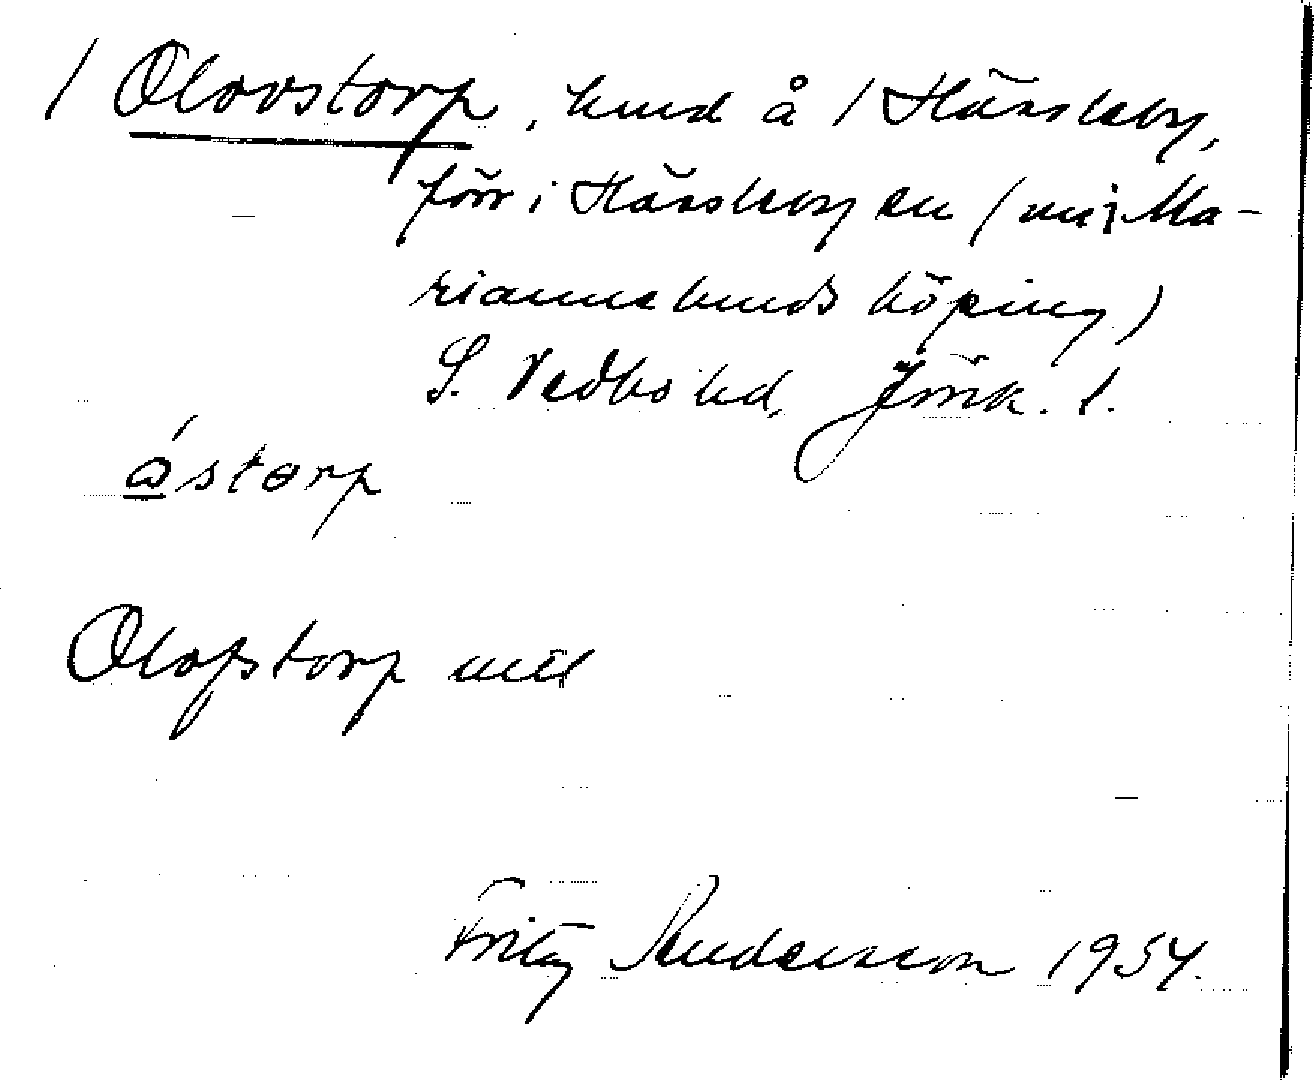 / Olovstorp, lund å / Hässleby,
förr i Hässleby sn (nu i Ma-
riannelunds köping)
S. Vedbo hd, Jönk. l.
åstorp
Olofstorp
Fritz Andersson 1954.